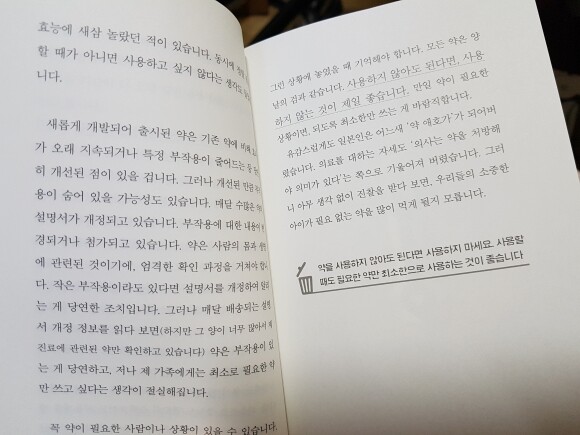 효능에 새삼 놀랐던 적이 있습니다. 동시에
할 때가 아니면 사용하고 싶지 않다는 생각도
니다.
새롭게 개발되어 출시된 약은 기존 약에 비해
가 오래 지속되거나 특정 부작용이 줄어드는 등
히 개선된 점이 있을 겁니다. 그러나 개선된 만큼
용이 숨어 있을 가능성도 있습니다. 매달 수많은
설명서가 개정되고 있습니다. 부작용에 대한 내용이
경되거나 첨가되고 있습니다. 약은 사람의 몸과
에 관련된 것이기에, 엄격한 확인 과정을 거쳐야
다. 작은 부작용이라도 있다면 설명서를 개정하여
는 게 당연한 조치입니다. 그러나 매달 배송되는
서 개정 정보를 읽다 보면(하지만 그 양이 너무 많아서 제
진료에 관련된 약만 확인하고 있습니다) 약은 부작용이 있
는 게 당연하고, 저나 제 가족에게는 최소로 필요한 약
만 쓰고 싶다는 생각이 절실해집니다.
꼭 약이 필요한 사람이나 상황이 있을 수 있습니다.
그런 상황에 놓였을 때 기억해야 합니다. 모든 약은 양
날의 검과 같습니다. 사용하지 않아도 된다면, 사용
하지 않는 것이 제일 좋습니다. 만일 약이 필요한
상황이면, 되도록 최소한만 쓰는 게 바람직합니다.
유감스럽게도 일본인은 어느새 '약 애호가'가 되어버
렸습니다. 의료를 대하는 자세도 '의사는 약을 처방해
야 의미가 있다'는 쪽으로 기울어져 버렸습니다. 그러
니 아무 생각 없이 진찰을 받다 보면, 우리들의 소중한
아이가 필요 없는 약을 많이 먹게 될지 모릅니다.
약을 사용하지 않아도 된다면 사용하지 마세요. 사용할
때도 필요한 약만 최소한으로 사용하는 것이 좋습니다